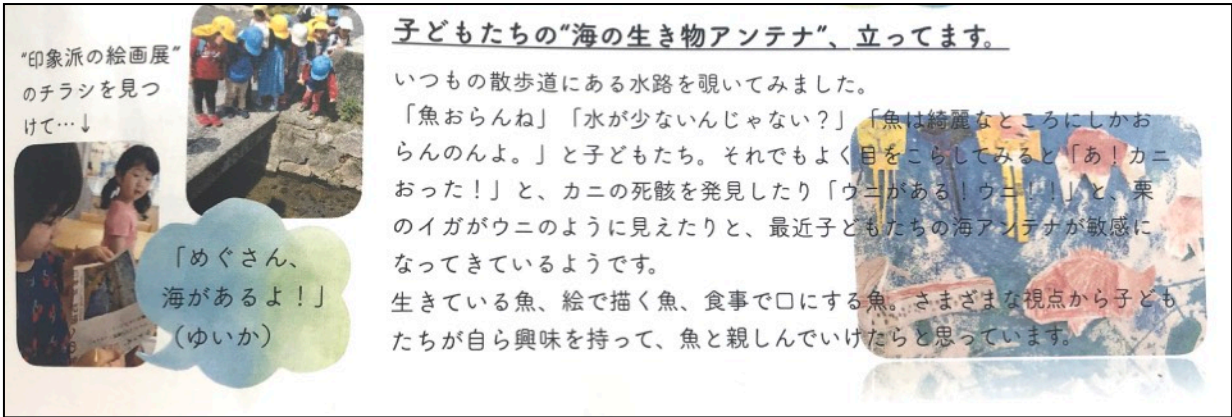 “印象派の絵画展”
のチラシを見つ
けて…↓
「めぐさん、
海があるよ！」
（ゆいか）
子どもたちの“海の生き物アンテナ”、立ってます。
いつもの散歩道にある水路を覗いてみました。
「魚おらんね」「水が少ないんじゃない？」「魚は綺麗なところにしかお
らんのんよ。」と子どもたち。それでもよく目をこらしてみると「あ！カニ
おった！」と、カニの死骸を発見したり「ウニがある！ウニ！！」と、栗
のイガがウニのように見えたりと、最近子どもたちの海アンテナが敏感に
なってきているようです。
生きている魚、絵で描く魚、食事で口にする魚。さまざまな視点から子ども
たちが自ら興味を持って、魚と親しんでいけたらと思っています。